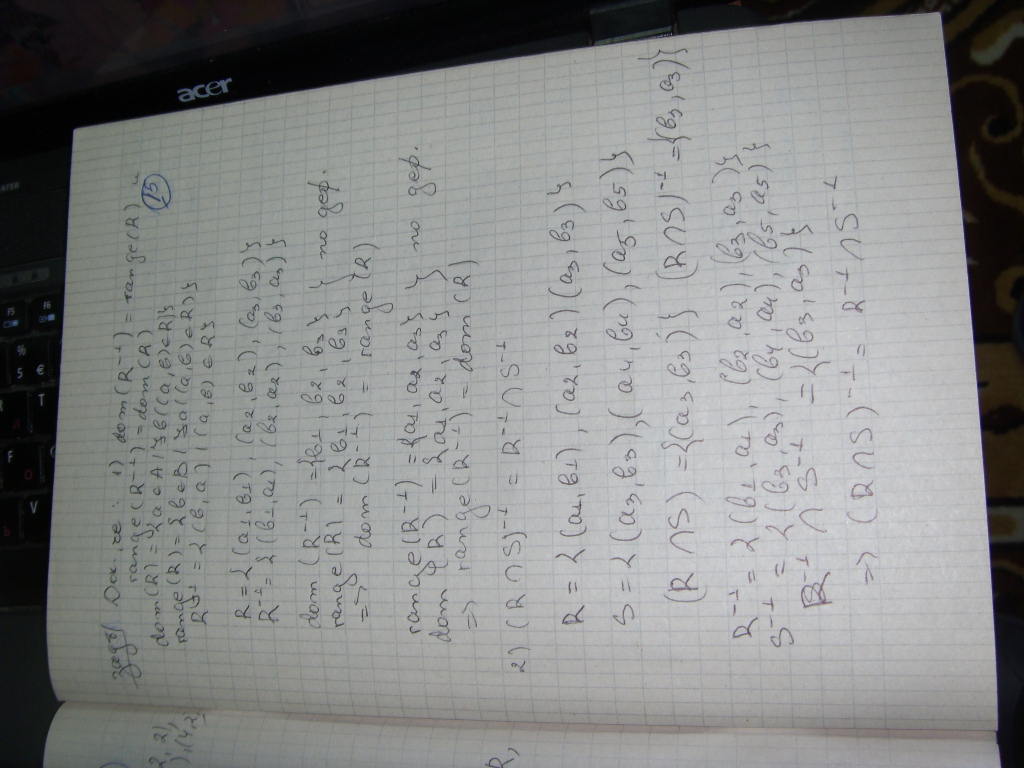 зад./ Док., че : 1) dom(R⁻¹) = range(R) и
range(R⁻¹) = dom(R) 15
dom(R) = {a ∈ A | ∃b((a,b) ∈ R)}
range(R) = {b ∈ B | ∃a((a,b) ∈ R)}
R⁻¹ = {(b,a) | (a,b) ∈ R}
R = {(a1,b1), (a2,b2), (a3,b3)}
R⁻¹ = {(b1,a1), (b2,a2), (b3,a3)}
dom(R⁻¹) = {b1, b2, b3} } по деф.
range(R) = {b1, b2, b3} }
=> dom(R⁻¹) = range(R)
range(R⁻¹) = {a1, a2, a3} } по деф.
dom(R) = {a1, a2, a3} }
=> range(R⁻¹) = dom(R)
2) (R ∩ S)⁻¹ = R⁻¹ ∩ S⁻¹
R = {(a1,b1), (a2,b2)(a3,b3)}
S = {(a3,b3), (a4,b4), (a5,b5)}
(R ∩ S) = {(a3,b3)} (R ∩ S)⁻¹ = {(b3,a3)}
R⁻¹ = {(b1,a1), (b2,a2), (b3,a3)}
S⁻¹ = {(b3,a3), (b4,a4), (b5,a5)}
R⁻¹ ∩ S⁻¹ = {(b3,a3)}
=> (R ∩ S)⁻¹ = R⁻¹ ∩ S⁻¹
acer
F5
F6
%
5
€
T
F
V
2, 2),
), (4,2
R,